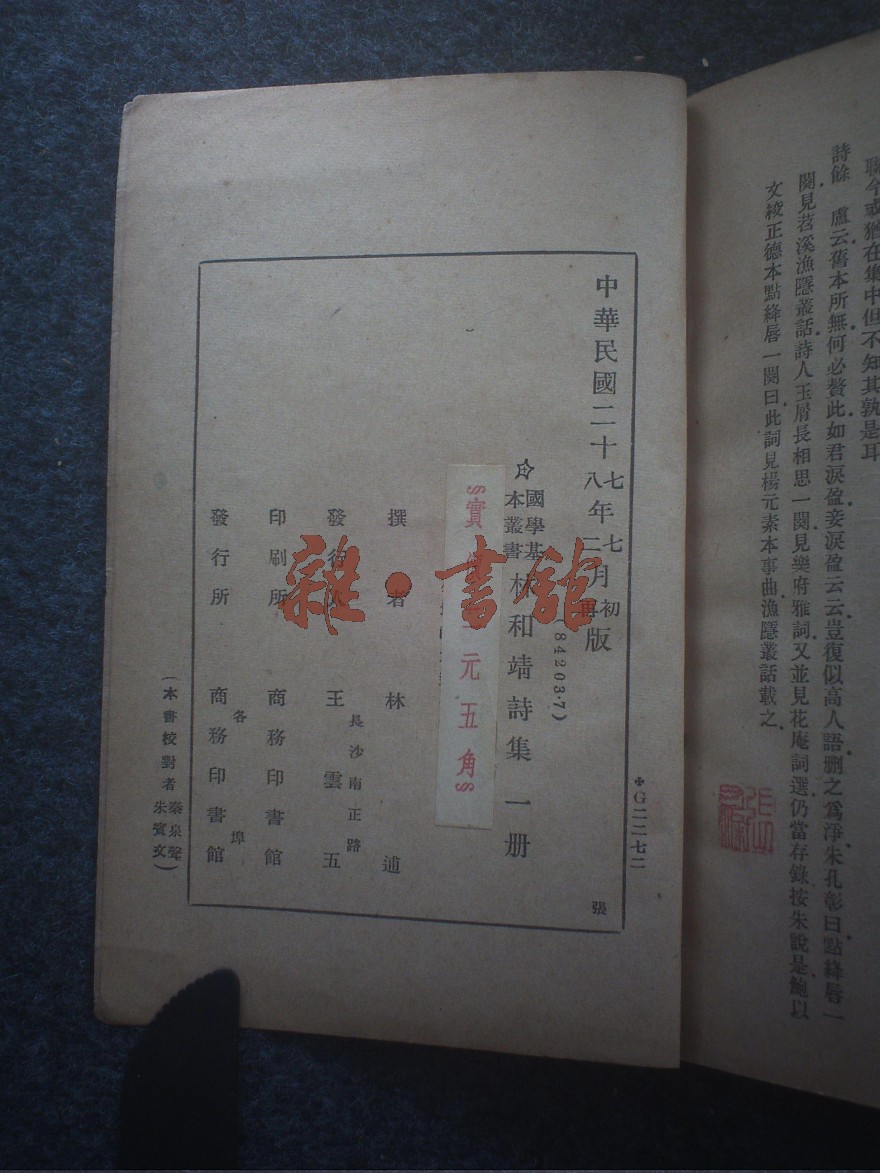 聯今或猶在集中但不知其孰是耳
詩餘　盧云舊本所無何必贅此如君淚盈妾淚盈云云豈復似高人語刪之爲淨朱孔彰曰點絳唇一
闋見苕溪漁隱叢話詩人玉屑長相思一闋見樂府雅詞又並見花庵詞選仍當存錄按朱說是鮑以
文綾正德本點絳唇一闋曰此詞見楊元素本事曲漁隱叢話載之
✠G二二七二
中華民國二十七年七月初版
八年二月再版
(84203·7)
☆國學基本叢書 林和靖詩集 一册
§實 元五角§
撰者 林逋
發行人 王雲五
長沙南正路
印刷所 商務印書館
發行所 商務印書館
各埠
(本書校對者 秦泉聲 朱賓文)
張
雜·書館